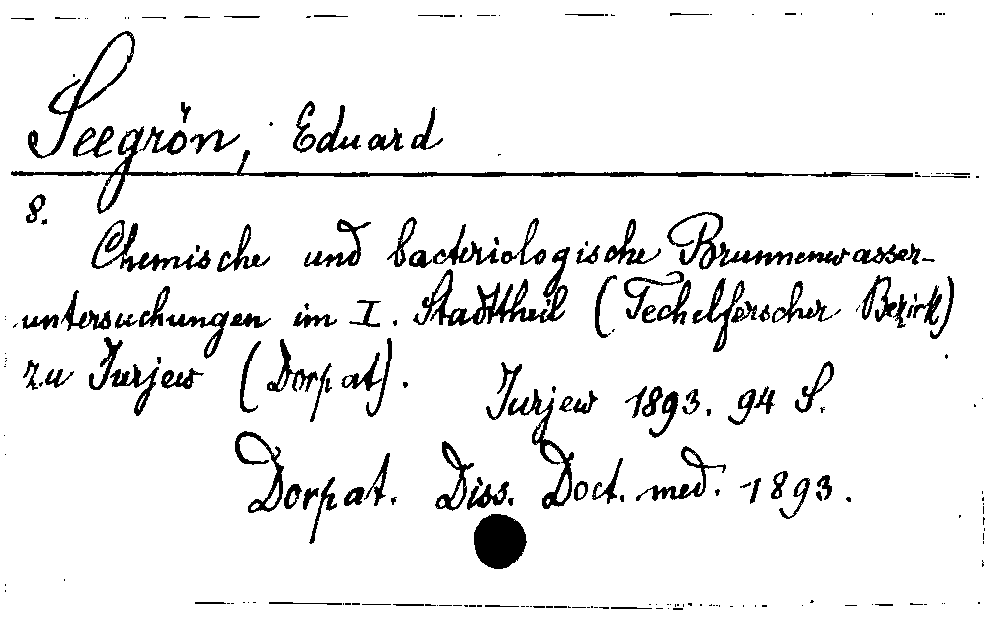 Seegrön, Eduard
8.
Chemische und bacteriologische Brunnenwasser-
untersuchungen im I. Stadttheil (Techelferscher Bezirk)
zu Jurjew (Dorpat).
Jurjew 1893. 94 S.
Dorpat. Diss. Doct. med. 1893.